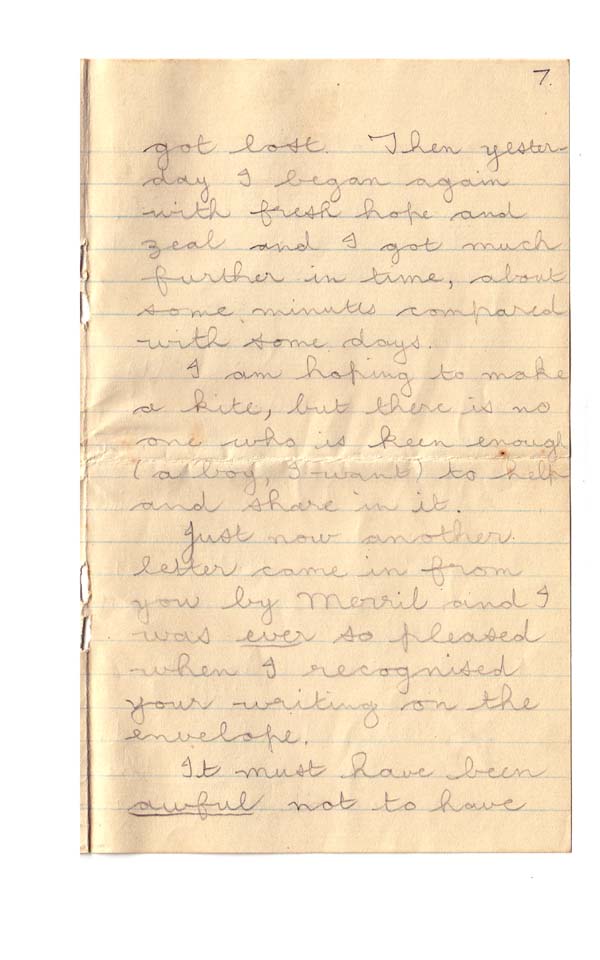 7.
got lost. Then yester-
day I began again
with fresh hope and
zeal and I got much
further in time, about
some minutes compared
with some days.
I am hoping to make
a kite, but there is no
one who is keen enough
(a boy, I want) to help
and share in it.
Just now another
letter came in from
you by Merril and I
was ever so pleased
when I recognised
your writing on the
envelope.
It must have been
awful not to have